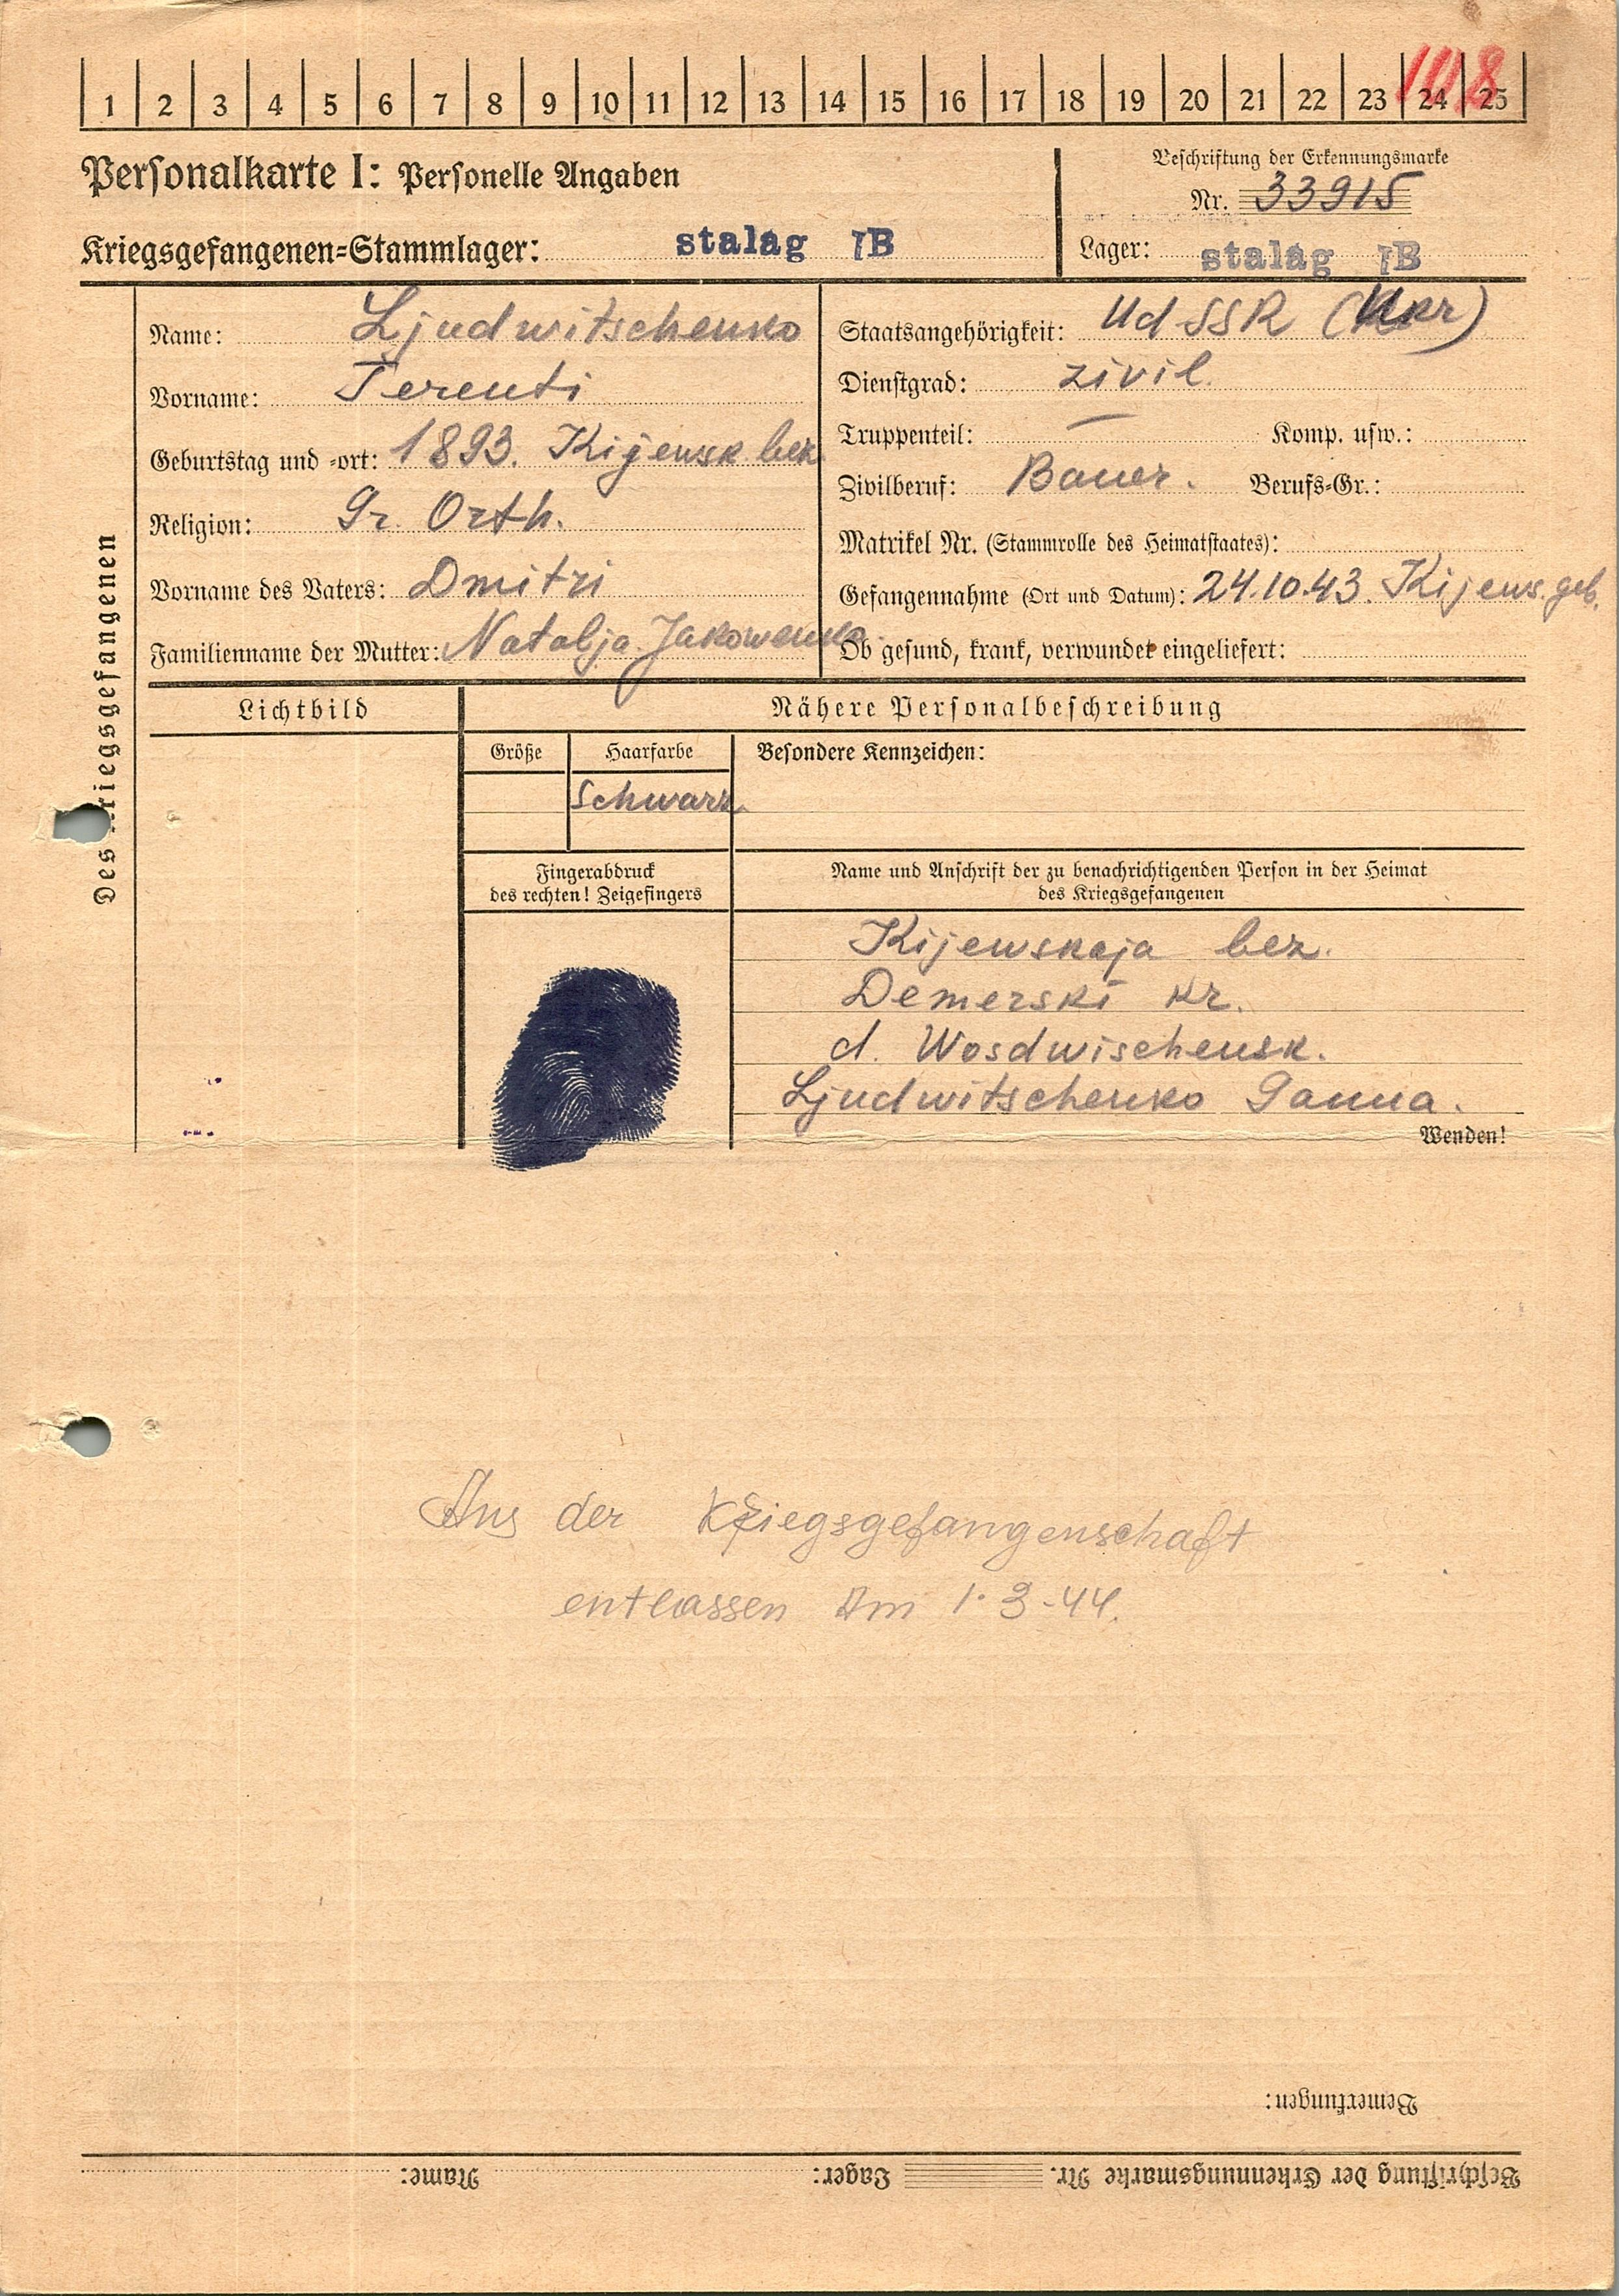 1 2 3 4 5 6 7 8 9 10 11 12 13 14 15 16 17 18 19 20 21 22 23 24 25
Personalkarte I: Personelle Angaben
Beschriftung der Erkennungsmarke
Nr. 33915
Kriegsgefangenen=Stammlager: stalag IB
Lager: stalag IB
Des Kriegsgefangenen
Name: Ljudwitschenko
Vorname: Terenti
Geburtstag und =ort: 1893. Kijewsk bez
Religion: Gr. Orth.
Vorname des Vaters: Dmitri
Familienname der Mutter: Natalja Jakowenko
Staatsangehörigkeit: UdSSR (Ukr)
Dienstgrad: zivil.
Truppenteil: — Komp. usw.:
Zivilberuf: Bauer. Berufs=Gr.:
Matrikel Nr. (Stammrolle des Heimatstaates):
Gefangennahme (Ort und Datum): 24.10.43. Kijews. geb.
Ob gesund, krank, verwundet eingeliefert:
Lichtbild
Nähere Personalbeschreibung
Größe
Haarfarbe
Besondere Kennzeichen:
Schwarz.
Fingerabdruck
des rechten! Zeigefingers
Name und Anschrift der zu benachrichtigenden Person in der Heimat
des Kriegsgefangenen
Kijewskaja bez.
Demerski kr.
d. Wosdwischensk.
Ljudwitschenko Ganna.
Wenden!
Aus der Kriegsgefangenschaft
entlassen Am 1.3-44.
Bemerkungen:
Beschriftung der Erkennungsmarke Nr. Lager: Name: